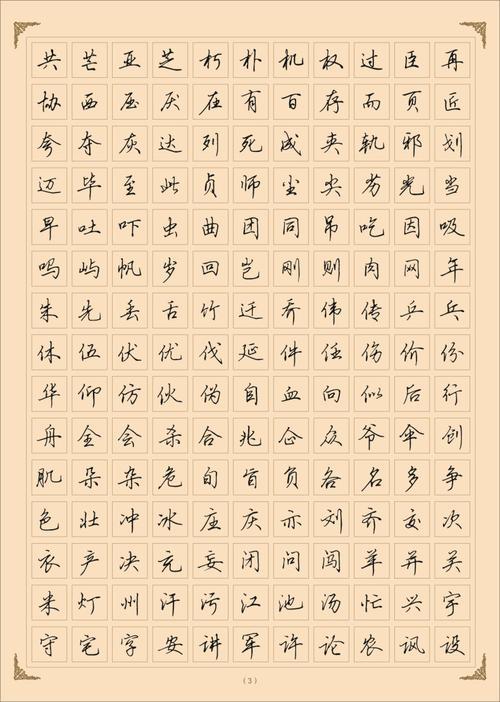 共芒亚芝朽朴机权过臣再
协西压厌在有百存而页匠
夸夺灰达列死成夹轨邪划
迈毕至此贞师尘尖劣光当
早吐吓虫曲团同吊吃因吸
吗屿帆岁回岂刚则肉网年
朱先丢舌竹迁乔伟传乒乓
休伍伏优伐延件任伤价份
华仰仿伙伪自血向似后行
舟全会杀合兆企众爷伞创
肌朵杂危旬旨负各名多争
色壮冲冰庄庆亦刘齐交次
衣产决充妄闭问闯羊并关
米灯州汗污江池汤忙兴宇
守宅字安讲军许论农讽设
(3)